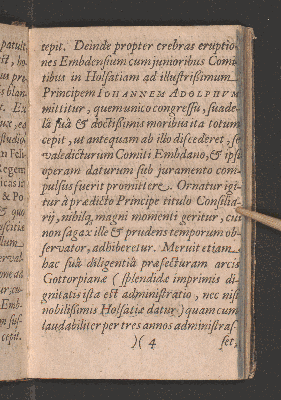 patuit,
cepit. Deinde propter crebras eruptio-
nes Embdensium cum junioribus Comi-
tibus in Holsatiam ad illustrißimum
Principem IOHANNEM ADOLPHUM
mittitur, quem unico congressu, suade-
lâ suâ & doctißimis moribus ita totum
cepit, ut antequam ab illo discederet, se
valedicturum Comiti Embdano, & ipsi
operam daturum sub juramento com-
pulsus fuerit promittere. Ornatur igi-
tur à prædicto Principe titulo Consilia-
rij, nihilq; magni momenti geritur, cui
non sagax ille & prudens temporum ob-
servator, adhiberetur. Meruit etiam
hac suâ diligentiâ præfecturam arcis
Gottorpianæ (splendida imprimis di-
gnitatis ista est administratio, nec nisi
nobilißimis Holsatiæ datur) quam cum
laudabiliter per tres annos administras-
)( 4 set,